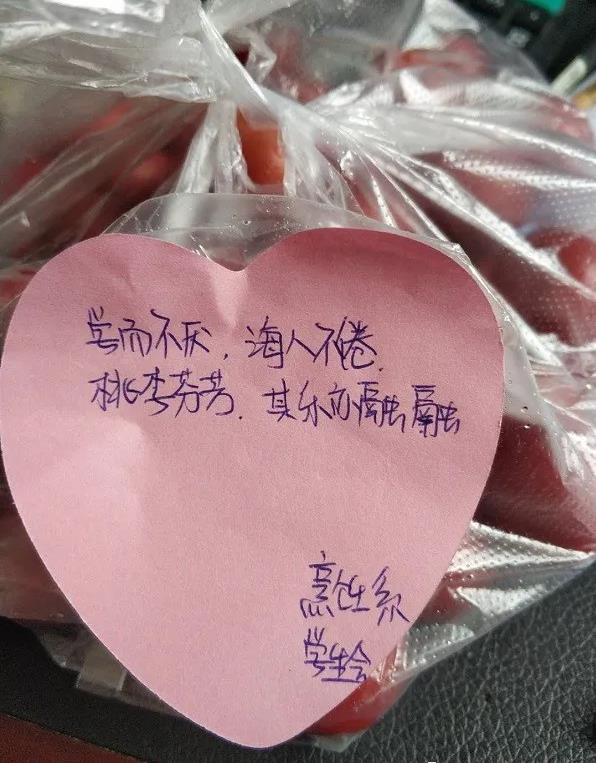 学而不厌，诲人不倦.
桃李芬芳. 其乐亦融融
烹饪系
学生会